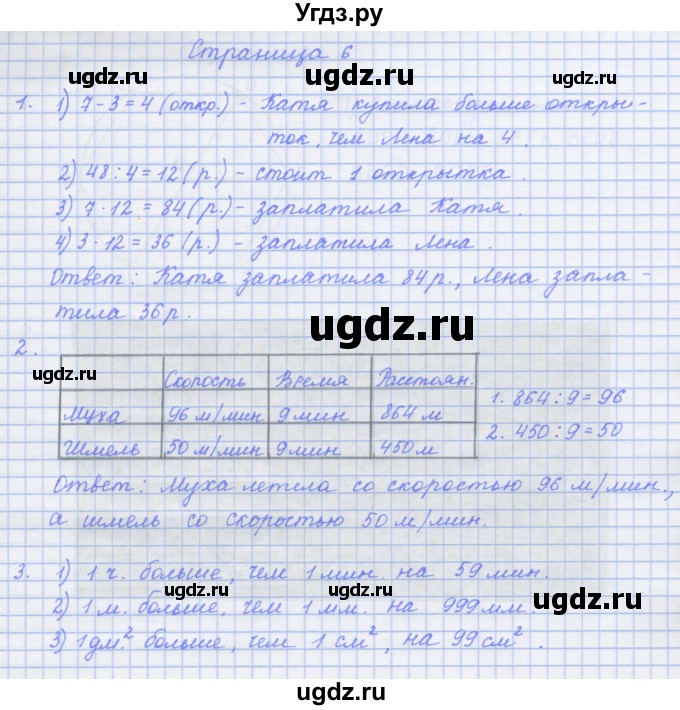 Угдз.ру
Страница 6
ugdz.ru ugdz.ru
1. 1) 7-3=4 (откр.) - Катя купила больше откры-
ток, чем Лена на 4.
ugdz.ru
2) 48:4=12 (р.) - стоит 1 открытка.
3) 7·12=84 (р.) - заплатила Катя.
ugdz.ru ugdz.ru
4) 3·12=36 (р.) - заплатила Лена.
Ответ: Катя заплатила 84р., Лена запла-
тила 36р.
ugdz.ru
2.
ugdz.ru
Скорость Время Расстоян.
Муха 96 м/мин 9 мин 864 м
Шмель 50 м/мин 9 мин 450 м
1. 864:9=96
2. 450:9=50
ugdz.ru
Ответ: Муха летела со скоростью 96 м/мин.,
а шмель со скоростью 50 м/мин.
3. 1) 1 ч. больше, чем 1 мин на 59 мин.
ugdz.ru ugdz.ru
2) 1 м. больше, чем 1 мм. на 999 мм.
ugdz.ru
3) 1 дм.² больше, чем 1 см², на 99 см².
ugdz.ru